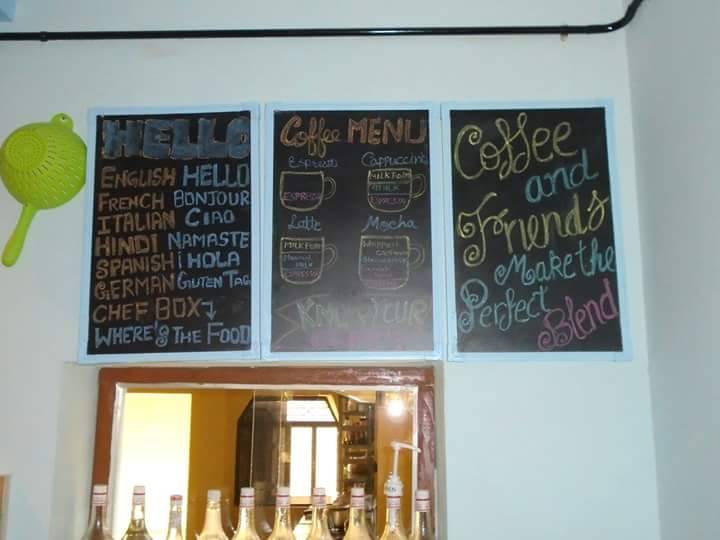 HELLO
ENGLISH HELLO
FRENCH BONJOUR
ITALIAN CIAO
HINDI NAMASTE
SPANISH ¡ HOLA
GERMAN GUTEN TAG
CHEF BOX
WHERE'S THE FOOD
Coffee MENU
Espresso Cappuccino
ESPRESSO
MILK FOAM
MILK
ESPRESSO
Latte Mocha
MILK FOAM
MILK
ESPRESSO
WHIPPED
CREAM
Coffee
and
Friends
Make the
Perfect
Blend